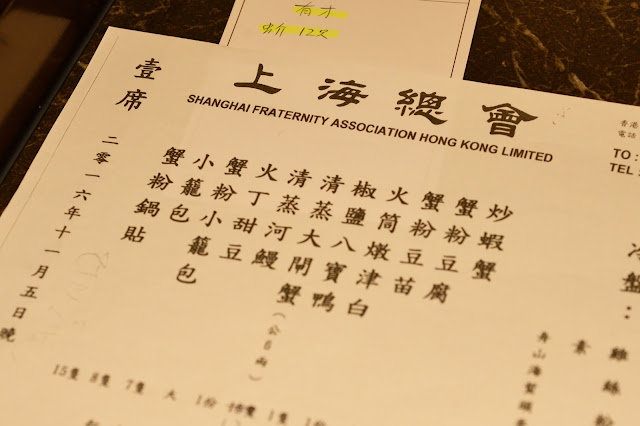 上海總會
SHANGHAI FRATERNITY ASSOCIATION HONG KONG LIMITED
香港
電話
TO :
TEL :
冷盤：雞絲粉
素
舟山海蜇頭
炒蝦蟹
蟹粉豆腐
蟹粉豆苗
火筒燉津白
椒鹽八寶鴨
清蒸大閘蟹
清蒸河鰻
火丁甜豆
蟹粉小籠包
小籠包
蟹粉鍋貼
壹席
二零一六年十一月五日晚
15隻 8隻 7隻 大 1份 1隻 1份